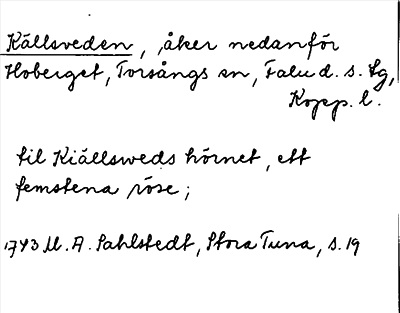 Källsveden, åker nedanför
Hoberget, Torsångs sn, Falu d. s. lg,
Kopp. l.
til Kiällsweds hörnet, ett
femstena röse;
1743 M. A. Sahlstedt, Stora Tuna, s. 19